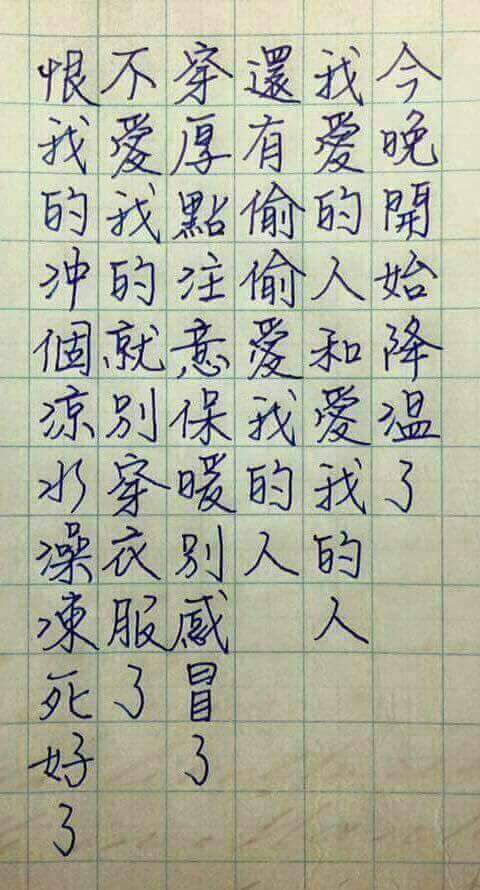 今晚開始降温了
我愛的人和愛我的人
還有偷偷愛我的人
穿厚點注意保暖別感冒了
不愛我的就別穿衣服了
恨我的冲個凉水澡凍死好了